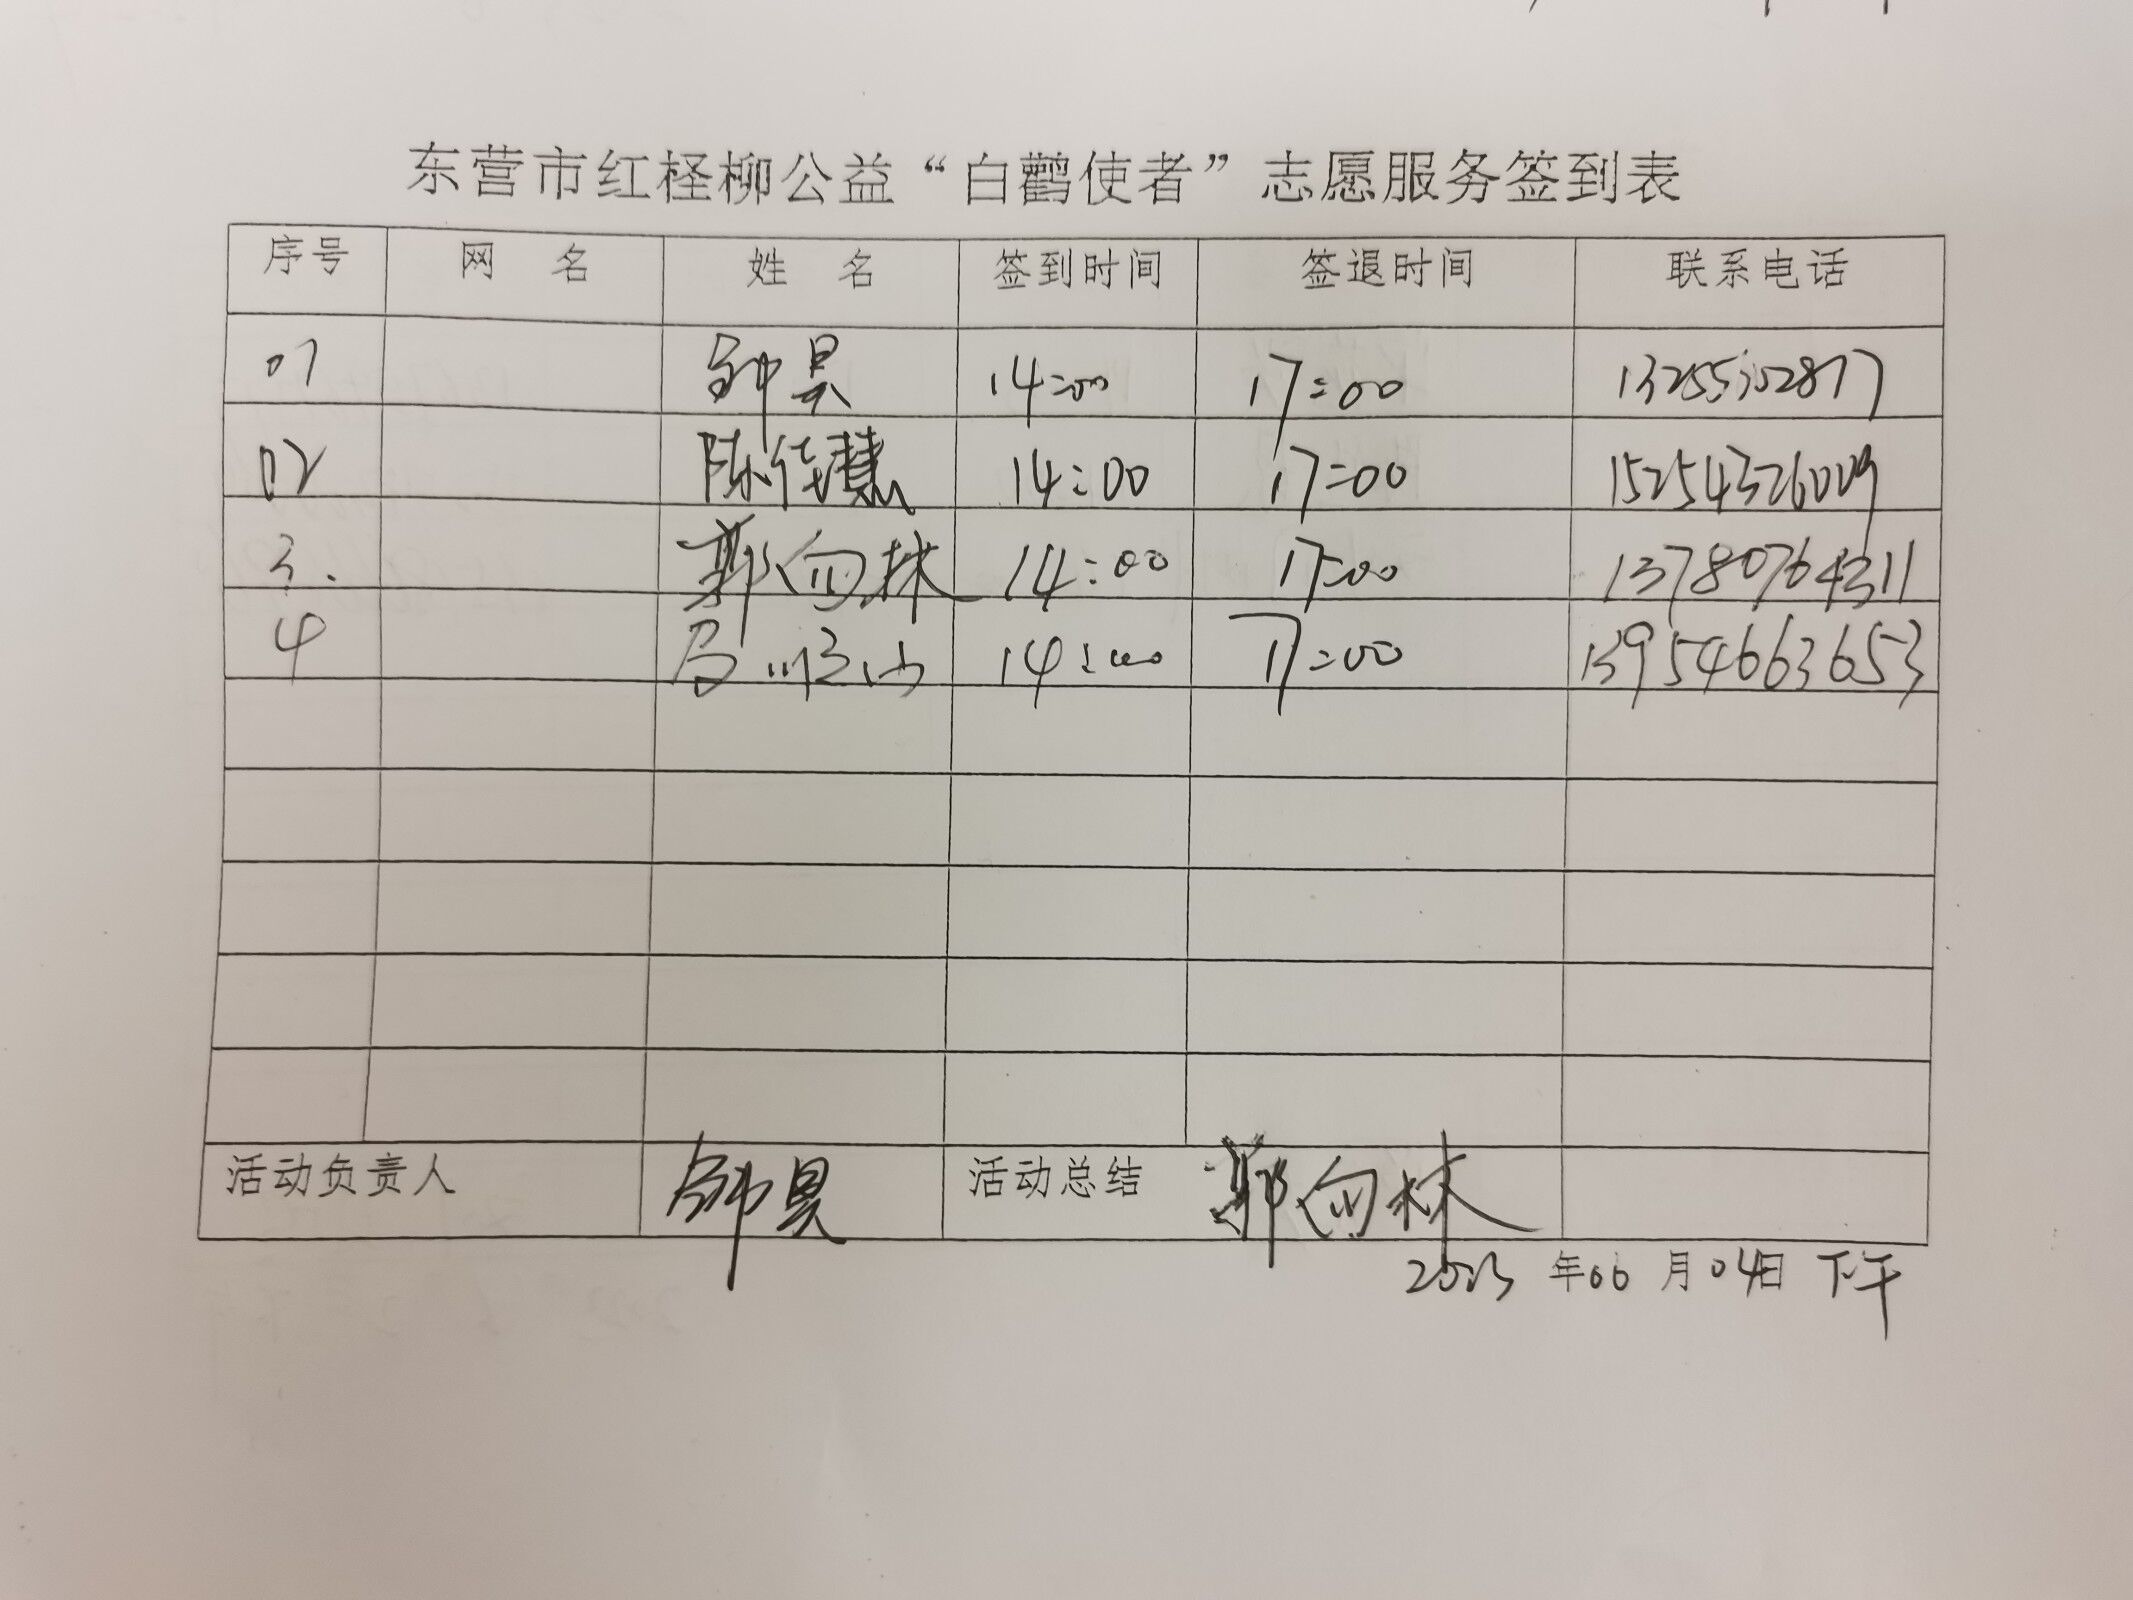 东营市红柽柳公益“白鹳使者”志愿服务签到表
序号 网 名 姓 名 签到时间 签退时间 联系电话
01 昊 14:00 17:00
02 陈佳慧 14:00 17:00 15254326009
3. 郭向林 14:00 17:00 13780764311
4 14:00 17:00 13954663653
活动负责人 昊 活动总结 郭向林
2023 年 06 月 04 日 下午